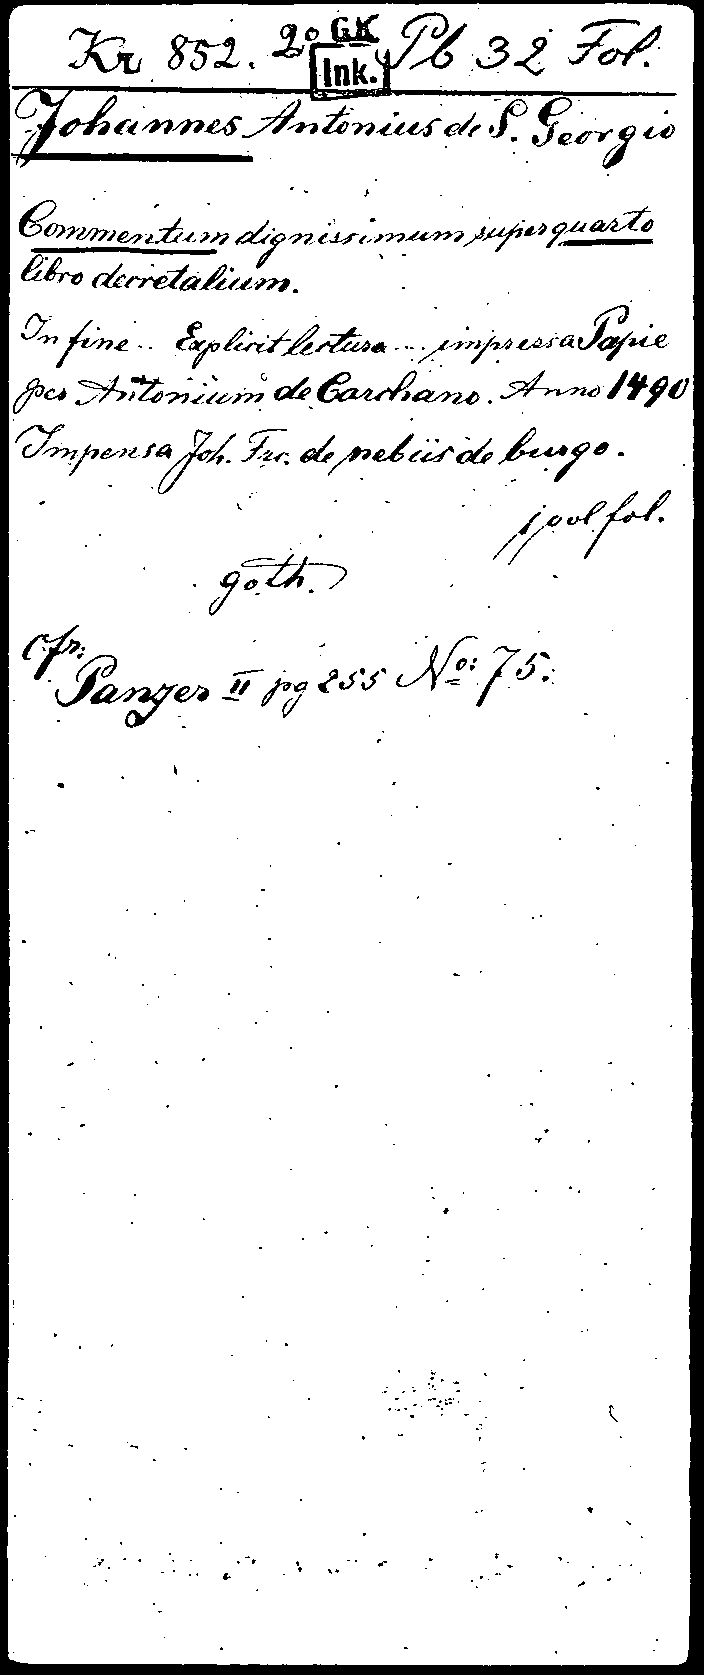 Kr 852. 2o GK Pb 32 Fol.
Ink.
Johannes Antonius de S. Georgio
Commentum dignissimum super quarto
libro decretalium.
In fine .. Explicit lectura ... impressa Papie
per Antonium de Carchano. Anno 1490
Impensa Joh. Frc. de nebiis de burgo.
1 vol fol.
goth.
cfr:
Panzer II pg 255 No: 75.